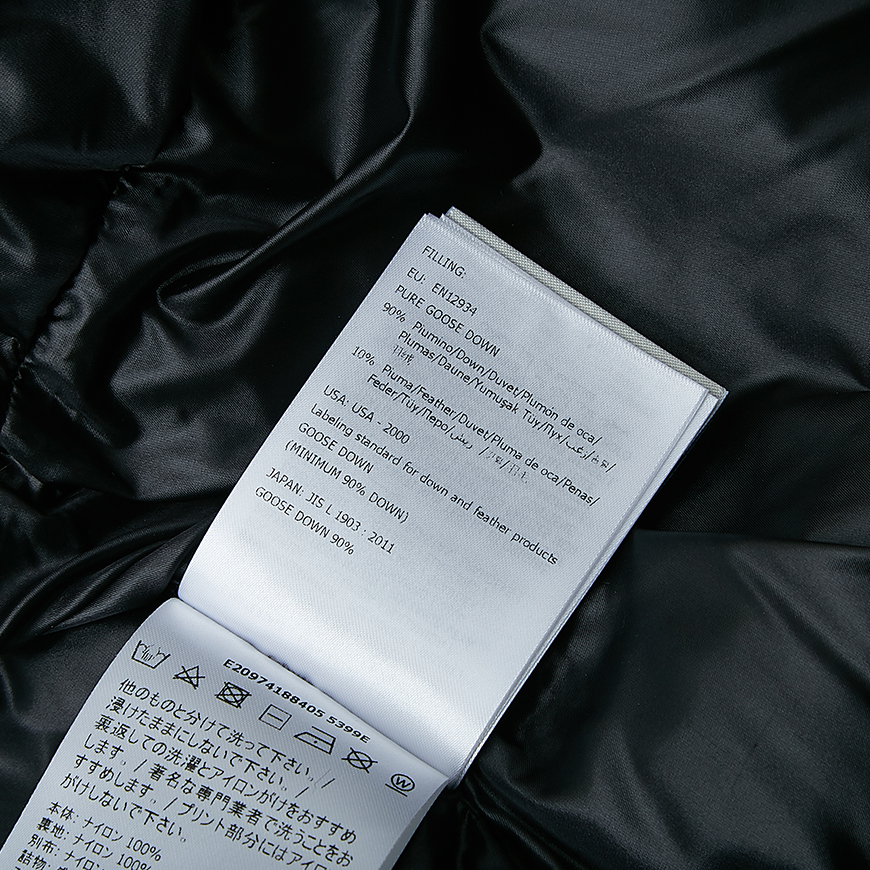 FILLING:
EU: EN12934
PURE GOOSE DOWN
90% Piumino/Down/Duvet/Plumon de oca/
Plumas/Daune/Yumuşak Tüy/Пух/زغب/
10% Piuma/Feather/Duvet/Pluma de oca/Penas/
Feder/Tüy/Перо/ريش/
USA: USA - 2000
Labeling standard for down and feather products
GOOSE DOWN
(MINIMUM 90% DOWN)
JAPAN: JIS L 1903 : 2011
GOOSE DOWN 90%
E20974188405 5399E
W
他のものと分けて洗って下さい。/
浸けたままにしないで下さい。/
裏返しての洗濯とアイロンがけをおすすめ
します。/ 著名な専門業者で洗うことをお
すすめします。/ プリント部分にはアイロ
がけしないで下さい。
本体: ナイロン 100%
裏地: ナイロン 100%
別布: ナイロン 100%
詰物: